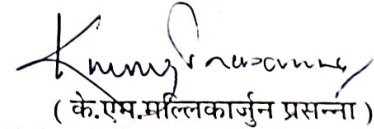 ( के.एम.मल्लिकार्जुन प्रसन्ना )